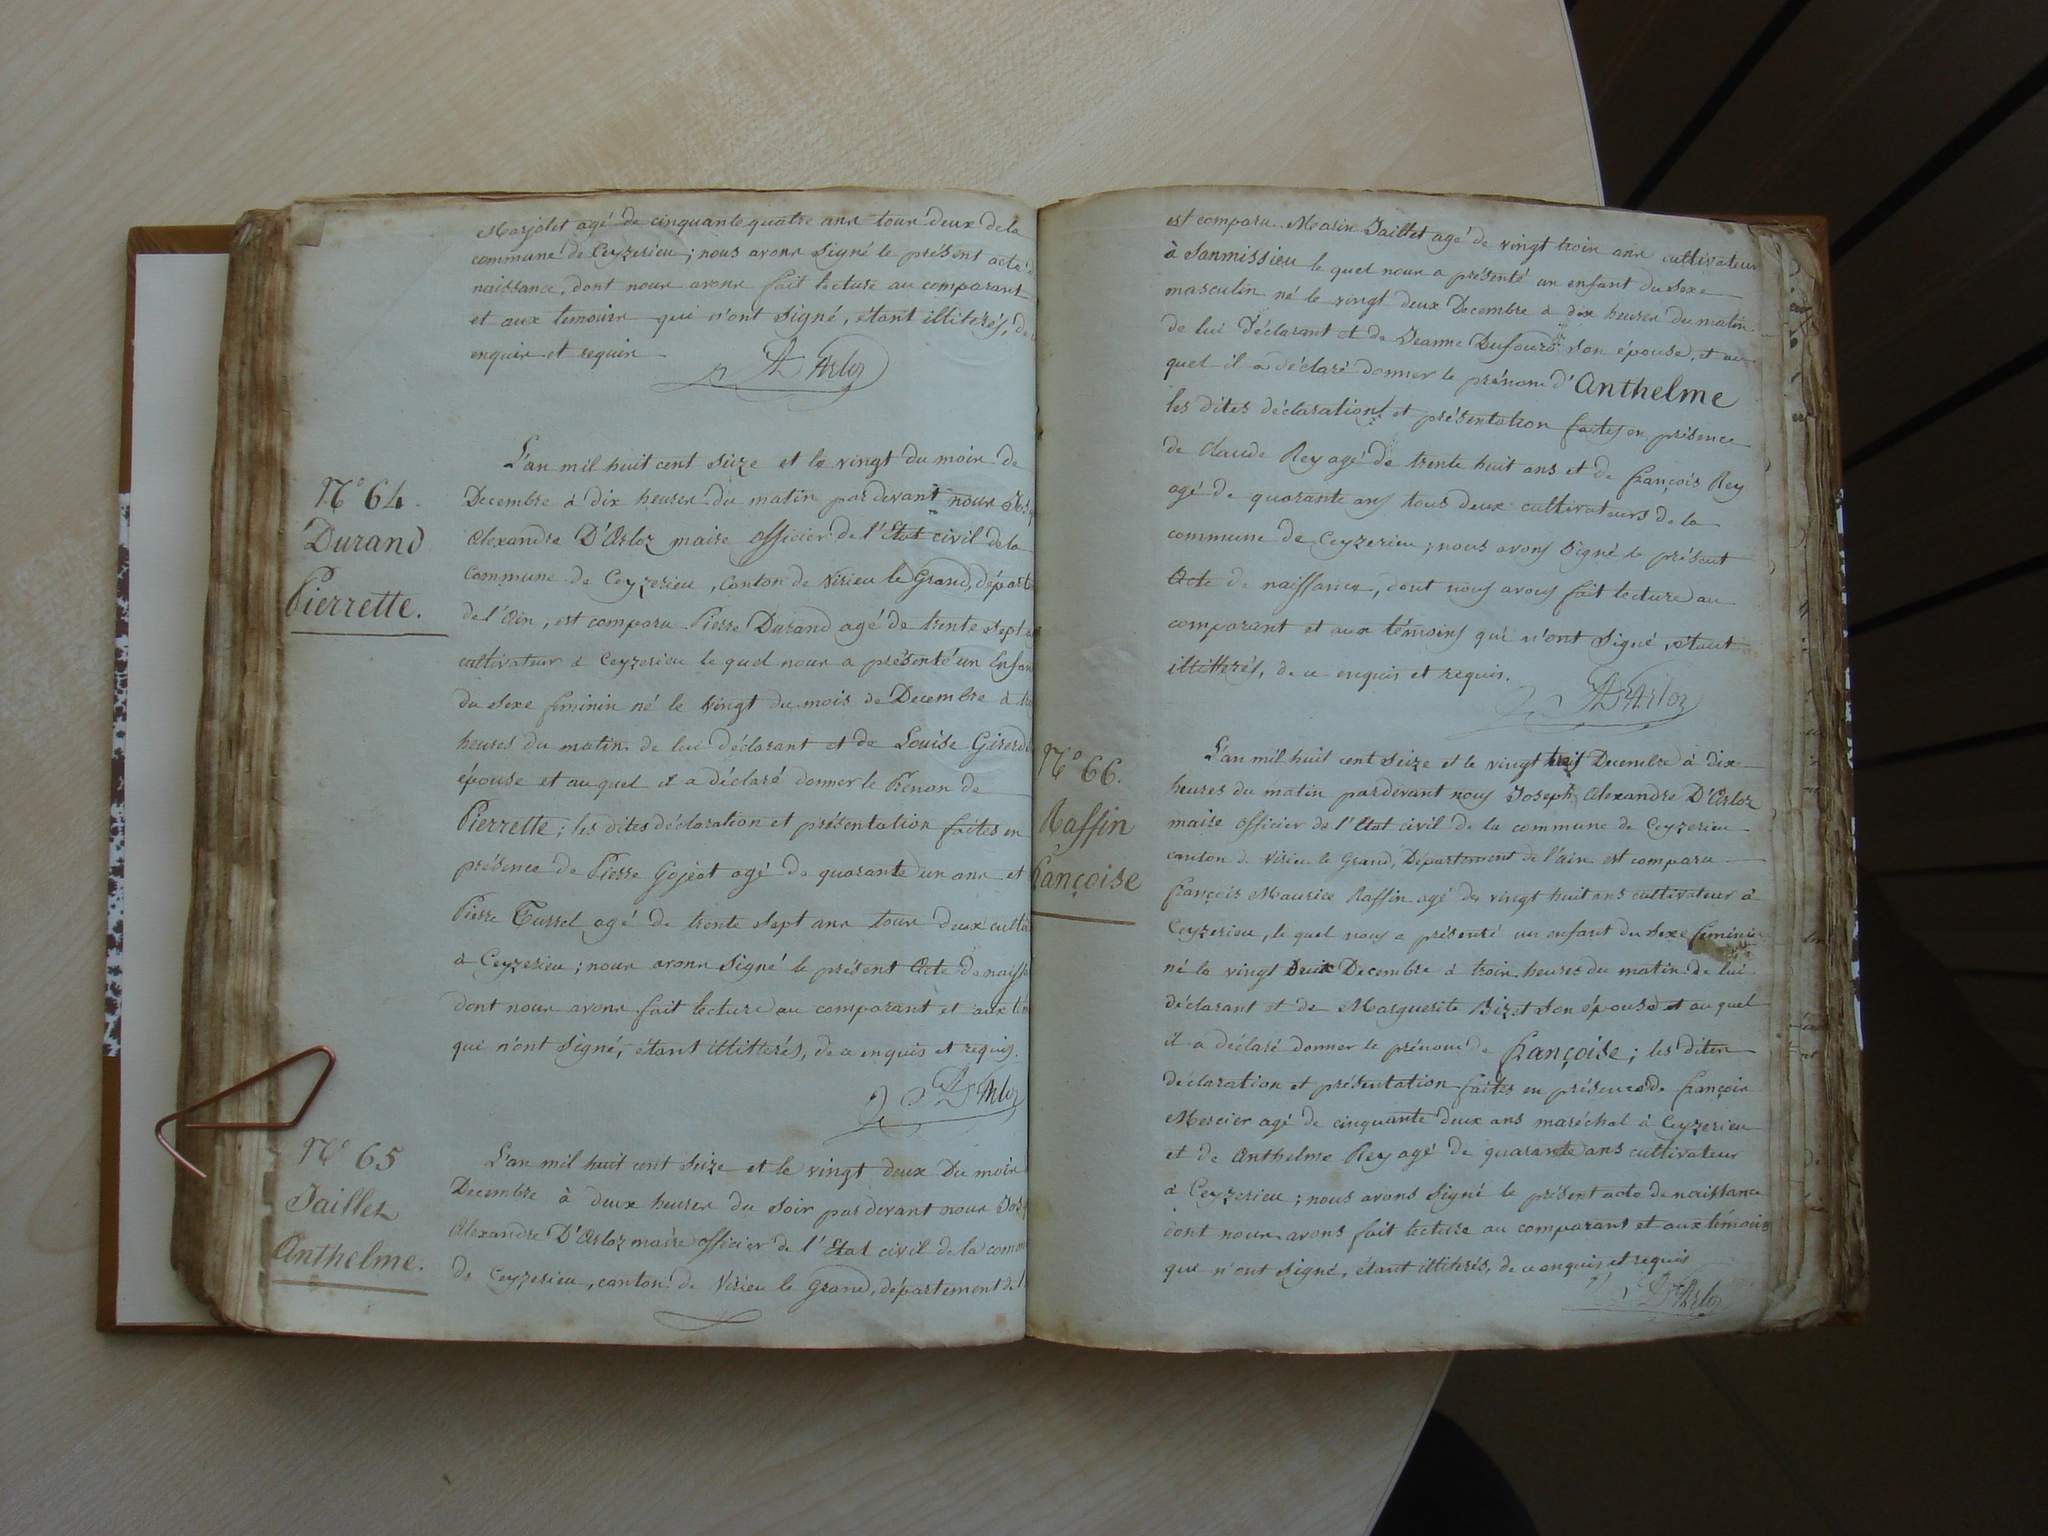 Marjolet agé de cinquante quatre ans tous deux de la
commune de Ceyzerieu; nous avons signé le présent acte de
naissance, dont nous avons fait lecture au comparant
et aux temoins qui n'ont signé, étant illiterés, de
enquis et requis
D'Arloz
N° 64.
Durand
Pierrette.
L'an mil huit cent seize et le vingt du mois de
Decembre à dix heures du matin par devant nous
Alexandre D'Arloz maire officier de l'Etat civil de la
Commune de Ceyzerieu, Canton de Virieu le Grand, départ
de l'Ain, est comparu Pierre Durand agé de trente sept
cultivateur à Ceyzerieu le quel nous a présenté un Enfan
du sexe feminin né le vingt du mois de Decembre à
heures du matin de lui déclarant et de Louise Girerd
épouse et au quel il a déclaré donner le Prénon de
Pierrette; les dites déclaration et présentation faites en
présence de Pierre Gojeot agé de quarante un ans et
Pierre Turrel agé de trente sept ans tous deux cultiv
à Ceyzerieu; nous avons signé le présent Acte de naiss
dont nous avons fait lecture au comparant et aux té
qui n'ont signé, étant illitterés, de ce enquis et requis.
D'Arloz
N° 65
Jaillet
Anthelme.
L'an mil huit cent seize et le vingt deux du mois
Decembre à deux heures du soir par devant nous Jos
Alexandre D'Arloz maire officier de l'Etat civil de la com
de Ceyzerieu, canton de Virieu le Grand, département de l
est comparu Marin Jaillet agé de vingt trois ans cultivateur
à Sanmissieu le quel nous a présenté un enfant du sexe
masculin né le vingt deux Decembre à dix heures du matin
de lui déclarant et de Jeanne Dufour son épouse, et au
quel il a déclaré donner le prénom d'Anthelme
les dites déclarations et présentation faites en présence
de Claude Rey agé de trente huit ans et de françois Rey
agé de quarante ans tous deux cultivateurs de la
commune de Ceyzerieu; nous avons signé le présent
Acte de naissance, dont nous avons fait lecture au
comparant et aux témoins qui n'ont signé, étant
illitterés, de ce enquis et requis.
D'Arloz
N° 66.
Raffin
françoise
L'an mil huit cent seize et le vingt trois Decembre à dix
heures du matin pardevant nous Joseph Alexandre D'Arloz
maire officier de l'Etat civil de la commune de Ceyzerieu
canton de Virieu le Grand, Département de l'ain est comparu
françois Maurice Raffin agé de vingt huit ans cultivateur à
Ceyzerieu, le quel nous a présenté un enfant du sexe feminin
né le vingt deux Decembre à trois heures du matin de lui
déclarant et de Marguerite Bizet son épouse et au quel
il a déclaré donner le prénom de françoise; les dites
déclaration et présentation faites en présence de françois
Mercier agé de cinquante deux ans maréchal à Ceyzerieu
et de Anthelme Rey agé de quarante ans cultivateur
à Ceyzerieu; nous avons signé le présent acte de naissance
dont nous avons fait lecture au comparant et aux témoins
qui n'ont signé, étant illiterés, de ce enquis et requis
D'Arloz